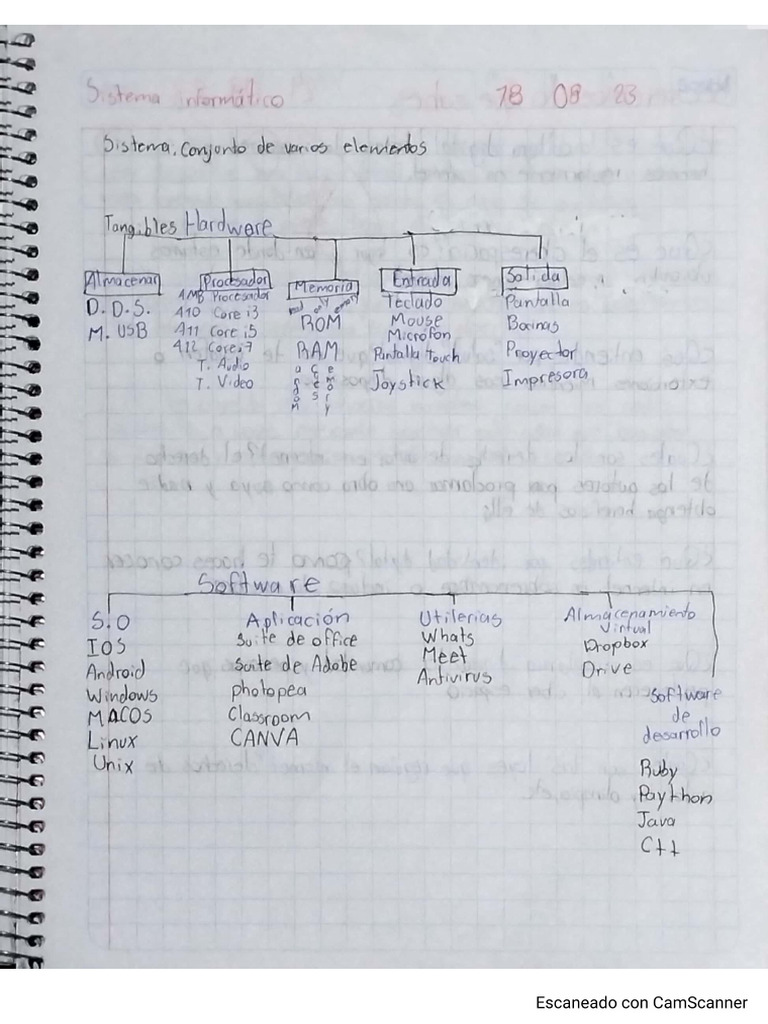 Sistema informático 18 08 23
Sistema. Conjunto de varios elementos
Tangibles Hardware
Almacenar
D. D. S.
M. USB
Procesador
AMB Procesador
A10 Core i3
A11 Core i5
A12 Core i7
T. Audio
T. Video
Memoria
read only memory
ROM
RAM
random access memory
Entrada
Teclado
Mouse
Micrófon
Pantalla Touch
Joystick
Salida
Pantalla
Bocinas
Proyector
Impresora
Software
S.O
IOS
Android
Windows
MACOS
Linux
Unix
Aplicación
Suite de office
Suite de Adobe
photopea
Classroom
CANVA
Utilerias
Whats
Meet
Antivirus
Almacenamiento
Virtual
Dropbox
Drive
Software
de
desarrollo
Ruby
Paython
Java
C++
Escaneado con CamScanner